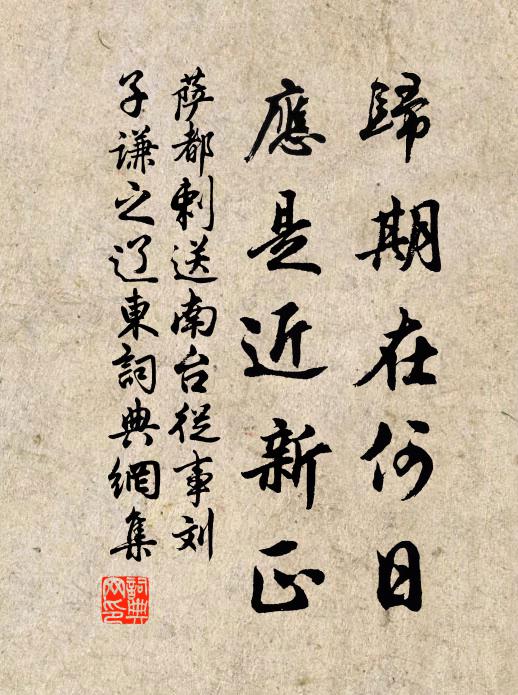 歸期在何日
應是近新正
薩都剌送南台從事刘
子謙之辽東詞典網集
詞典
网印